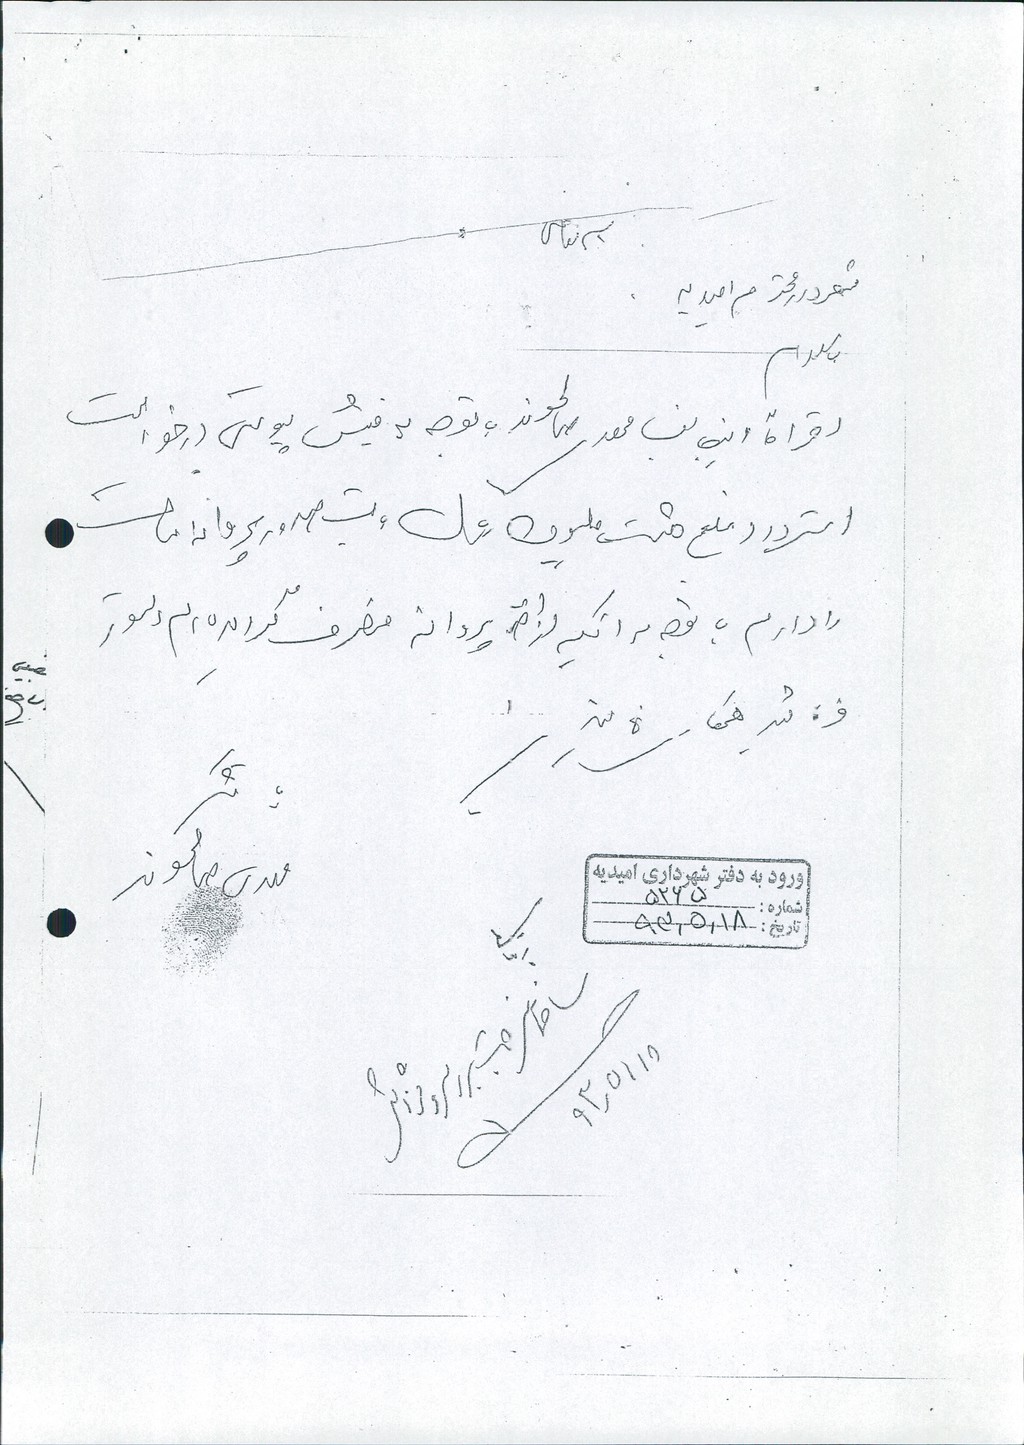 بسمه تعالی
شهردار محترم امیدیه
با سلام
احتراماً اینجانب مهدی صالحوند با توجه به فیش پیوستی درخواست
استرداد مبلغ هشت میلیون ریال بابت صدور پروانه ساخت
را دارم با توجه به اینکه از اخذ پروانه منصرف گردیده‌ام دستور
فرمائید همکاری نمایند
با تشکر
مهدی صالحوند
ورود به دفتر شهرداری امیدیه
شماره: ۵۲۶۵
تاریخ: ۹۳,۵,۱۸
ساختمان جهت بررسی و گزارش
۹۳,۵,۱۸